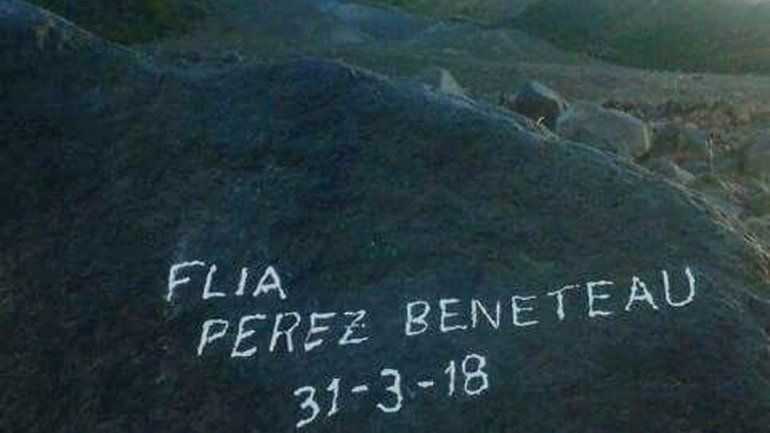 FLIA
PEREZ BENETEAU
31-3-18